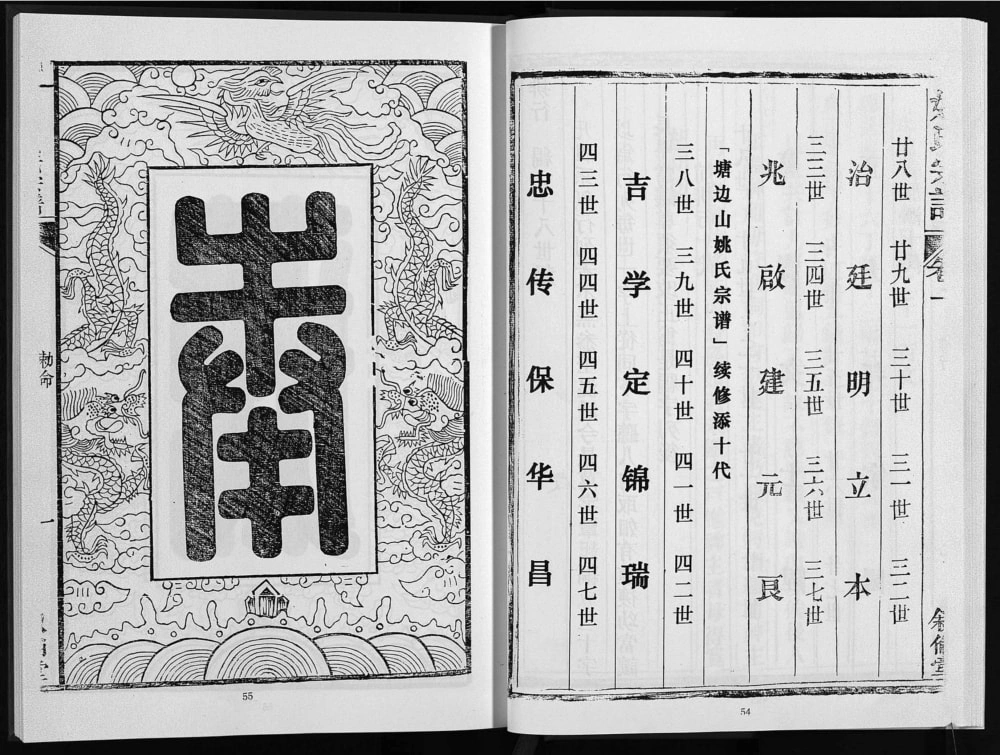 卷一
廿八世 廿九世 三十世 三一世 三二世
治 廷 明 立 本
三三世 三四世 三五世 三六世 三七世
兆 啟 建 元 良
「塘边山姚氏宗谱」续修添十代
三八世 三九世 四十世 四一世 四二世
吉 学 定 锦 瑞
四三世 四四世 四五世 四六世 四七世
忠 传 保 华 昌
54
奉
勅命
一
55